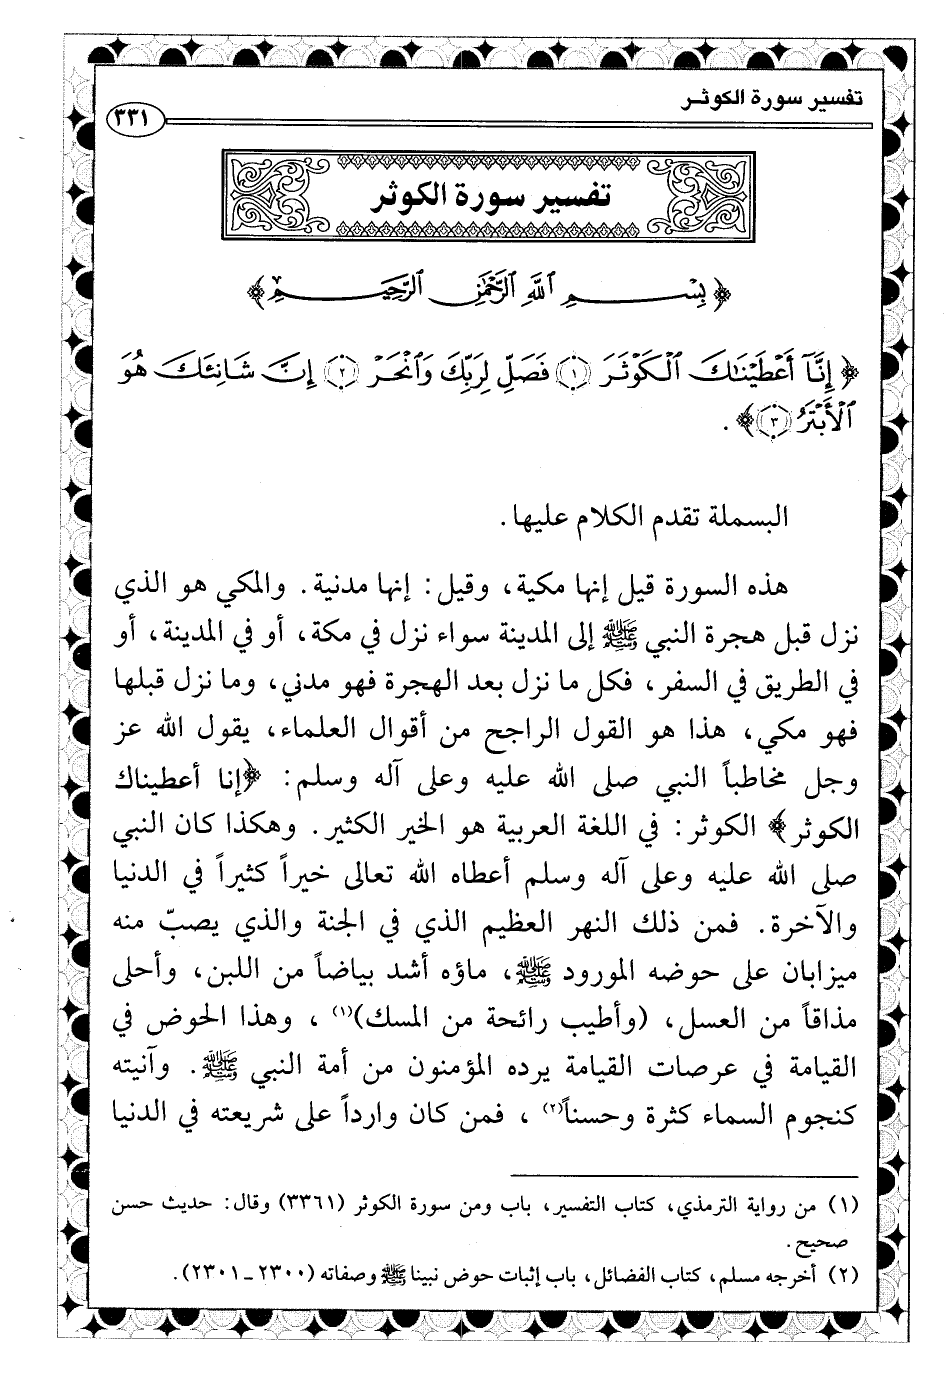 تفسير سورة الكوثـر
٣٣١
تفسير سورة الكوثر
﴿بِسْمِ ٱللَّهِ ٱلرَّحْمَٰنِ ٱلرَّحِيمِ﴾
﴿إِنَّآ أَعْطَيْنَٰكَ ٱلْكَوْثَرَ ﴿١﴾ فَصَلِّ لِرَبِّكَ وَٱنْحَرْ ﴿٢﴾ إِنَّ شَانِئَكَ هُوَ
ٱلْأَبْتَرُ ﴿٣﴾﴾.
البسملة تقدم الكلام عليها.
هذه السورة قيل إنها مكية، وقيل: إنها مدنية. والمكي هو الذي
نزل قبل هجرة النبي ﷺ إلى المدينة سواء نزل في مكة، أو في المدينة، أو
في الطريق في السفر، فكل ما نزل بعد الهجرة فهو مدني، وما نزل قبلها
فهو مكي، هذا هو القول الراجح من أقوال العلماء، يقول الله عز
وجل مخاطباً النبي صلى الله عليه وعلى آله وسلم: ﴿إنا أعطيناك
الكوثر﴾ الكوثر: في اللغة العربية هو الخير الكثير. وهكذا كان النبي
صلى الله عليه وعلى آله وسلم أعطاه الله تعالى خيراً كثيراً في الدنيا
والآخرة. فمن ذلك النهر العظيم الذي في الجنة والذي يصبّ منه
ميزابان على حوضه المورود ﷺ، ماؤه أشد بياضاً من اللبن، وأحلى
مذاقاً من العسل، (وأطيب رائحة من المسك)(١)، وهذا الحوض في
القيامة في عرصات القيامة يرده المؤمنون من أمة النبي ﷺ. وآنيته
كنجوم السماء كثرة وحسناً(٢)، فمن كان وارداً على شريعته في الدنيا
(١) من رواية الترمذي، كتاب التفسير، باب ومن سورة الكوثر (٣٣٦١) وقال: حديث حسن
صحيح.
(٢) أخرجه مسلم، كتاب الفضائل، باب إثبات حوض نبينا ﷺ وصفاته (٢٣٠٠ـ٢٣٠١).